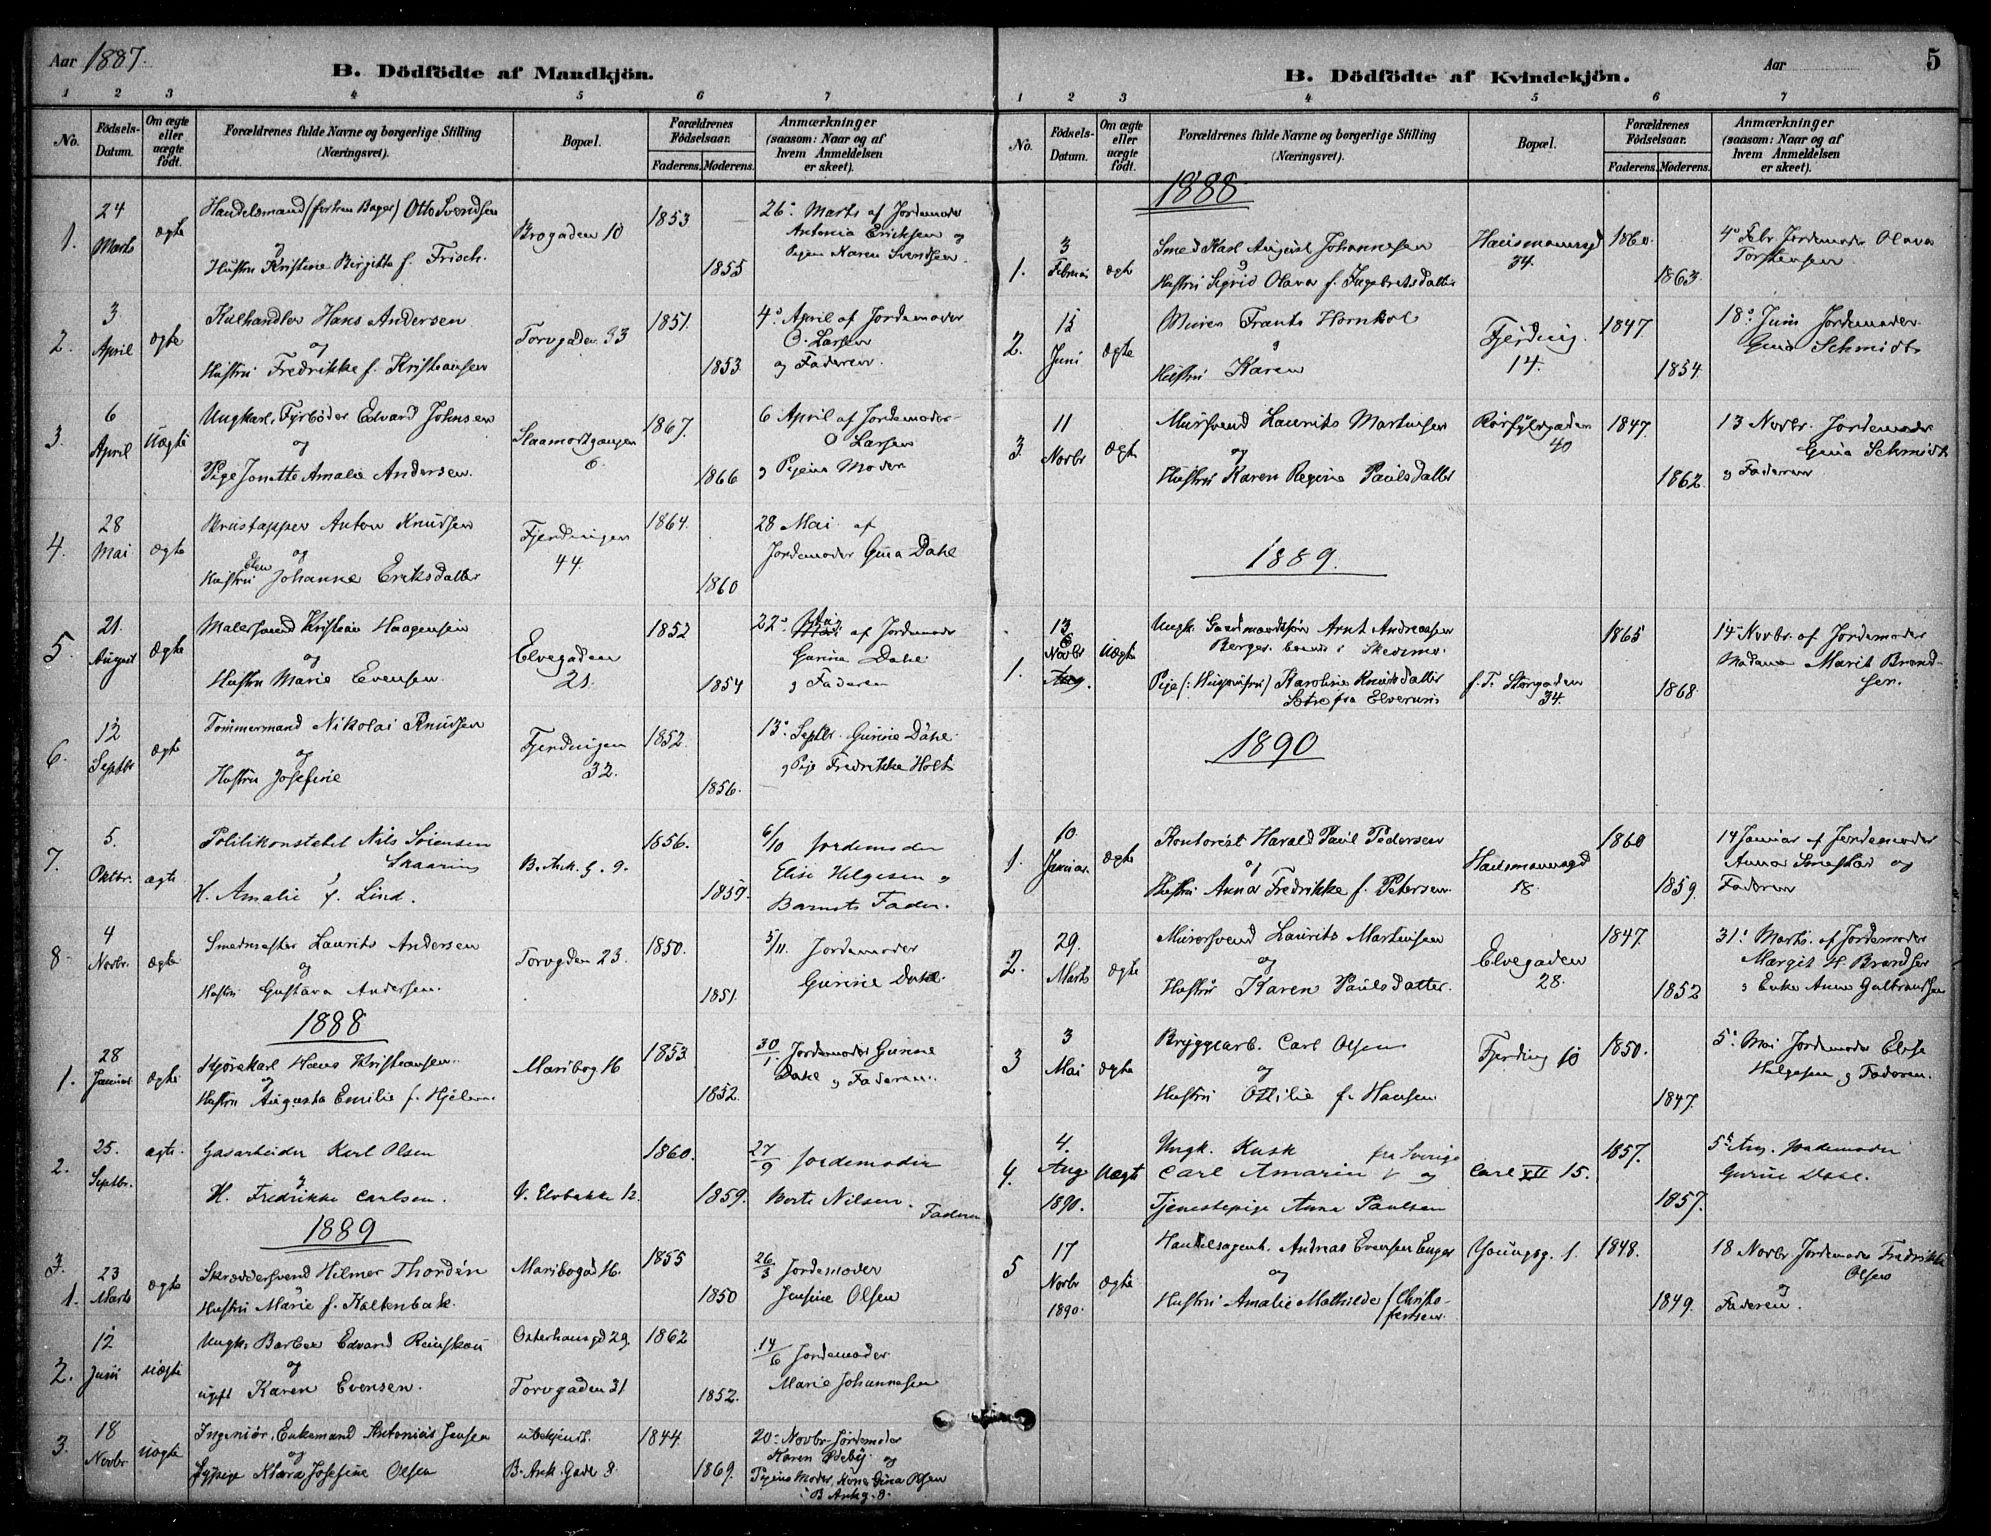 Aar 1887.
B. Dödfödte af Mandkjön.
1 2 3 4 5 6 7
No.
Födsels-Datum.
Om ægte eller uægte födt.
Forældrenes fulde Navne og borgerlige Stilling (Næringsvei).
Bopæl.
Forældrenes Födselsaar.
Faderens. Moderens.
Anmærkninger (saasom: Naar og af hvem Anmeldelsen er skeet).
1. 24 Marts ægte
Handelsmand (forhen Bager) Otto Svendsen
og
Hustru Kristine Birgitte f. Frisch.
Brogaden 10
1853
1855
26. Marts af Jordemoder
Antonia Eriksen og
Pigen Karen Svendsen.
2. 3 April ægte
Kulhandler Hans Andersen
og
Hustru Fredrikke f. Kristiansen
Torvgaden 33
1851.
1853
4. April af Jordemoder
O. Larsen
og Faderen.
3. 6 April Uægte
Ungkarl, Fyrböder Edvard Johnsen
og
Pige Jonette Amalie Andersen.
6.
1867.
1866
6 April af Jordemoder
O Larsen
og Pigens Moder
4. 28 Mai ægte
Anton Knudsen
og
Hustru Elen Johanne Eriksdatter
Fjerdingen
44.
1864.
1860
28 Mai af
Jordemoder Gina Dahl
5. 21. August ægte
Malersvend Kristian Haagensen
og
Hustru Marie Evensen.
Elvegaden
21.
1852
1854
22. Aug af Jordemoder
Gurine Dahl
og Faderen
6. 12 Septbr ægte
Tömmermand Nikolai Knudsen
og
Hustru Josefine
Fjerdingen
32.
1852.
1856.
13. Septbr. Gurine Dahl.
og Pige Fredrikke Holt
7. 5. Oktbr. ægte
Politikonstabel Nils Sörensen
Skaarins
H. Amalie f. Lind.
B. Ank. G. 9.
1856.
1859.
6/10 Jordemoder
Elise Helgesen og
Barnets Fader.
8. 4 Novbr. ægte
Smedmester Laurits Andersen
og
Hustru Gustava Andersen.
Torvgaden 23.
1850.
1851.
5/11. Jordemoder
Gurine Dahl
1888
1. 28 Januar ægte
Kjörekarl Hans Kristiansen.
og
Hustru Augusta Emilie f.
Maribog 16
1853
1852.
30/1. Jordemoder Gurine
Dahl og Faderen.
2. 25. Septbr. ægte
Gasarbeider Karl Olsen
og
H. Fredrikke Carlsen.
V. Elvbakke 12.
1860.
1859.
27/9 Jordemoder
Berte Nilsen. Faderen
1889
3. 1. 23 Marts ægte
Skræddersvend Hilmer Thordén
Hustru Marie f. Kaltenbak.
Maribogad 16.
1855
1850
26/3 Jordemoder
Jensine Olsen
2. 12 Juni uægte
Ungk. Barber Edvard Reinskou
og
ugift Karen Evensen.
Osterhausgd 29.
Torvgaden 31
1862
1852.
14/6 Jordemoder
Marie Johannesen
3. 18 Novbr uægte
Ingeniör, Enkemand Antonius Jensen
og
Sypige Klara Josefine Olsen
ubekjendt.
B. Ank. Gade 8.
1844.
1869.
20. Novbr Jordemoder
Karen Edeby. og
Pigens Moder, Kone Gina Olsen
i B Ankg. 8.
Aar
5
B. Dödfödte af Kvindekjön.
1 2 3 4 5 6 7
No.
Födsels-Datum.
Om ægte eller uægte födt.
Forældrenes fulde Navne og borgerlige Stilling (Næringsvei).
Bopæl.
Forældrenes Födselsaar.
Faderens. Moderens.
Anmærkninger (saasom: Naar og af hvem Anmeldelsen er skeet).
1888
1. 3 Februar ægte
Smed Karl August Johannesen
og
Hustru Sigrid Olava f. Ingebretsdatter
Hausmannsgd
34.
1860.
1863.
4. Febr. Jordemoder Olava
Torstensen
2. 15 Juni ægte
Murer Frants Hornkol
og
Hustru Karen
Fjerding.
14.
1847.
1854.
18. Juni Jordemoder
Gina Schmidt
3. 11 Novbr ægte
Mursvend Laurits Martinsen
og
Hustru Karen Regine Paulsdatter
40
1847.
1862.
13 Novbr. Jordemoder
Gina Schmidt
og Faderen
1889.
1. 13 Novbr Aug. Uægte
Ungk. Gaardmandssön Arnt Andreassen
Berger, i Skedsmo.
Pige Karoline Knudsdatter
Sætre fra Elverum
f. T. Storgaden
34.
1865
1868.
14 Novbr. af Jordemoder
Madame Marit Brand-
sen.
1890
1. 10 Januar. ægte
Kontorist Harald Paul Pedersen
og
Hustru Anna Fredrikke f. Petersen.
Hausmannsgd
18.
1860
1859.
14 Januar af Jordemoder
Anna og
Faderen
2. 29. Marts ægte
Murersvend Laurits Martinsen
og
Hustru Karen Paulsdatter.
Elvegaden
28.
1847.
1852
31. Marts. af Jordemoder
Margit H. Brandser
og Enke Anne Gulbrandsen
3 3 Mai ægte
Bryggearb. Carl Olsen
og
Hustru Ottilie f. Hansen
Fjerding 10
1850.
1847.
5. Mai Jordemoder Elise
Helgesen og Faderen.
4. 4. Aug 1890. Uægte
Ungk. Kusk fra Sverige
Carl Amarin og
Tjenestepige Anna Paulsen
Carl XII 15.
1857.
1857.
5. Aug. Jordemoder
Gurine Dahl.
5 17 Novbr 1890. ægte
Handelsagent. Andreas Evensen Enger
og
Hustru Amalie Mathilde f. Christo-
fersen.
Youngsg. 1.
1848.
1849.
18 Novbr Jordemoder Fredrikke
Olsen
og
Faderen.